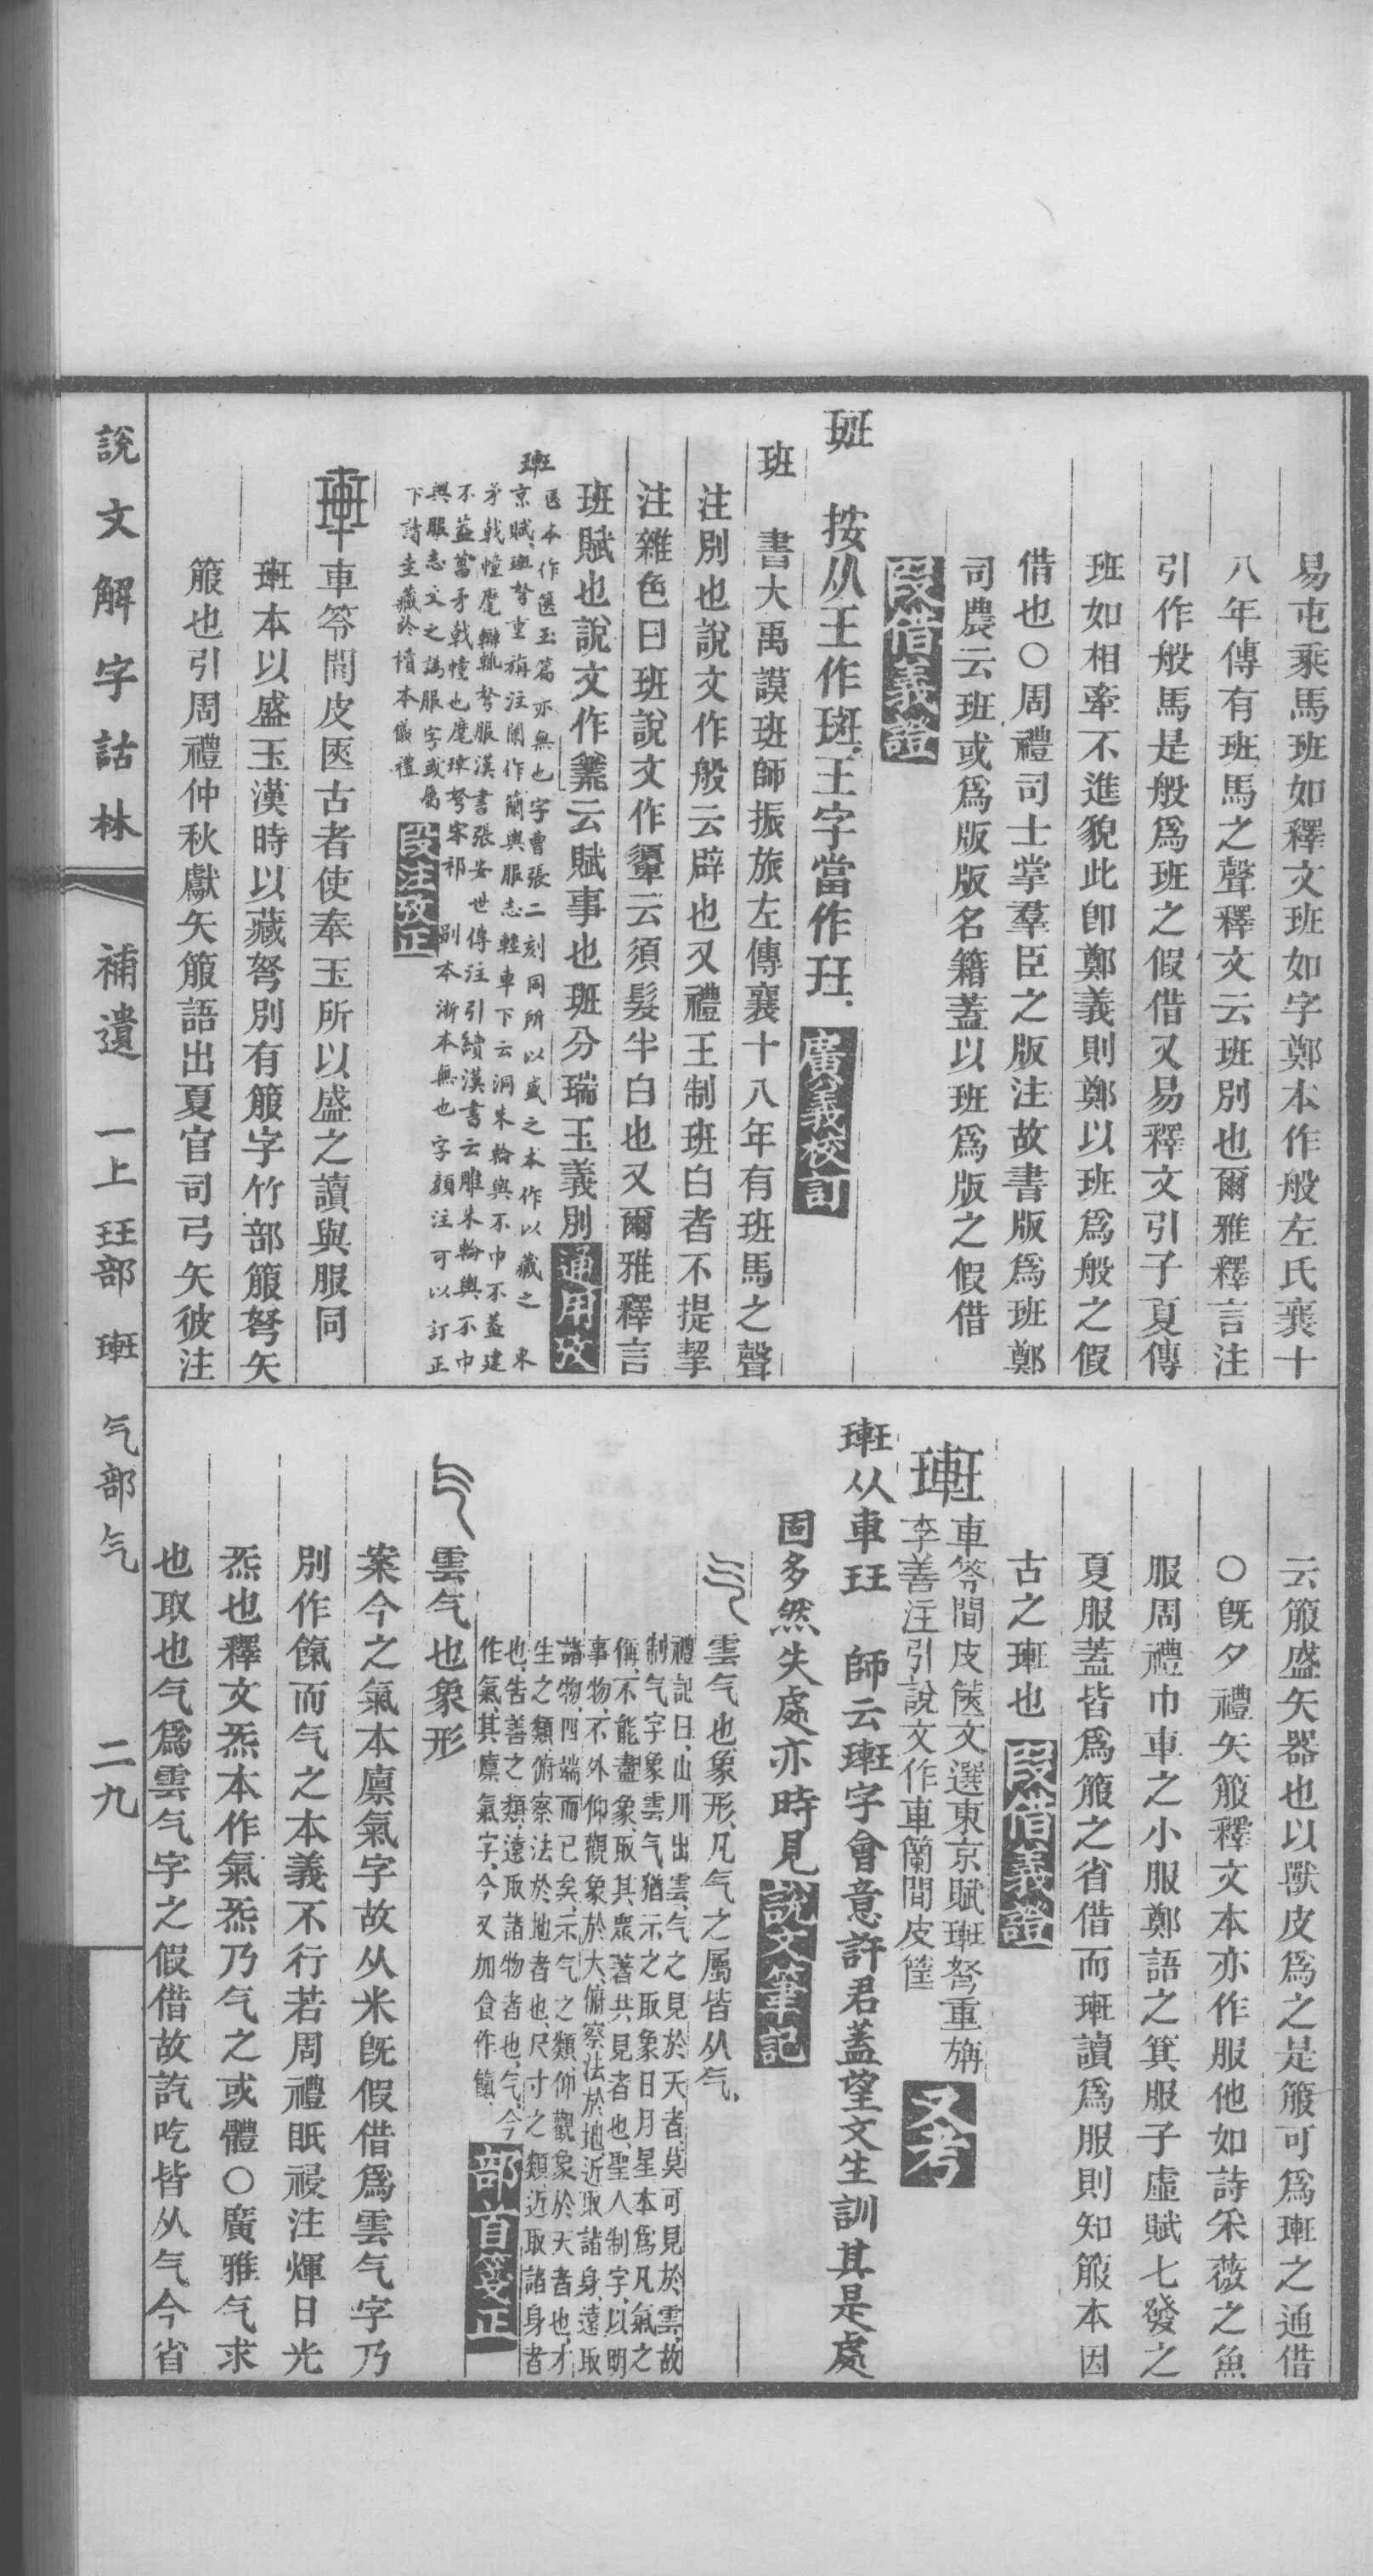 易屯乘馬班如釋文班如字鄭本作般左氏襄十
八年傳有班馬之聲釋文云班別也爾雅釋言注
引作般馬是般爲班之假借又易釋文引子夏傳
班如相牽不進貌此卽鄭義則鄭以班爲般之假
借也○周禮司士掌羣臣之版注故書版爲班鄭
司農云班或爲版版名籍蓋以班爲版之假借
段借義證
班 按从王作班王字當作玨、廣義校訂
班 書大禹謨班師振旅左傳襄十八年有班馬之聲
注別也說文作般云辟也又禮王制班白者不提挈
注雜色曰班說文作辬云須髮半白也又爾雅釋言
班賦也說文作𤰈云賦事也班分瑞玉義別通用攷
㻴 医本作篋玉篇亦無也字曹張二刻同所以盛之本作以藏之 東
京賦㻴弩重旃注蘭作闌輿服志輕車下云洞朱輪輿不巾不蓋建
矛戟幢麾㻴輒弩服漢書張安世傳注引續漢書云雕朱輪輿不巾
不蓋菑矛戟幢也麾㻴弩宋祁 別本浙本無也字顏注可以訂正
輿服志文之譌服字或屬
下讀圭藏於櫝本儀禮 段注攷正
㻴 車笭閒皮医古者使奉玉所以盛之讀與服同
㻴本以盛玉漢時以藏弩別有箙字竹部箙弩矢
箙也引周禮仲秋獻矢箙語出夏官司弓矢彼注
云箙盛矢器也以獸皮爲之是箙可爲㻴之通借
○旣夕禮矢箙釋文本亦作服他如詩采薇之魚
服周禮巾車之小服鄭語之箕服子虛賦七發之
夏服蓋皆爲箙之省借而㻴讀爲服則知箙本因
古之㻴也 段借義證
㻴 車笭間皮篋文選東京賦㻴弩重旃
李善注引說文作車蘭間皮筐 又考
㻴从車玨 師云㻴字會意許君蓋望文生訓其是處
固多然失處亦時見說文筆記
气 雲气也象形、凡气之屬皆从气、
禮記曰、山川出雲、气之見於天者、莫可見於雲、故
制气字象雲气、猶示之取象日月星、本爲凡氣之
偁、不能盡象、取其眾著共見者也、聖人制字、以明
事物、不外仰觀象於天、俯察法於地、近取諸身、遠取
諸物、四端而已矣、示气之類、仰觀象於天者也、才
生之類、俯察法於地者也、尺寸之類、近取諸身者
也、告善之類、遠取諸物者也、气、今
作氣、其廩氣字、今又加食作餼、部首箋正
气 雲气也象形
案今之氣本廩氣字故从米旣假借爲雲气字乃
別作餼而气之本義不行若周禮眂祲注煇日光
炁也釋文炁本作氣炁乃气之或體○廣雅气求
也取也气爲雲气字之假借故訖吃皆从气今省
說文解字詁林 補遺 一上 玨部 㻴 气部气 二九